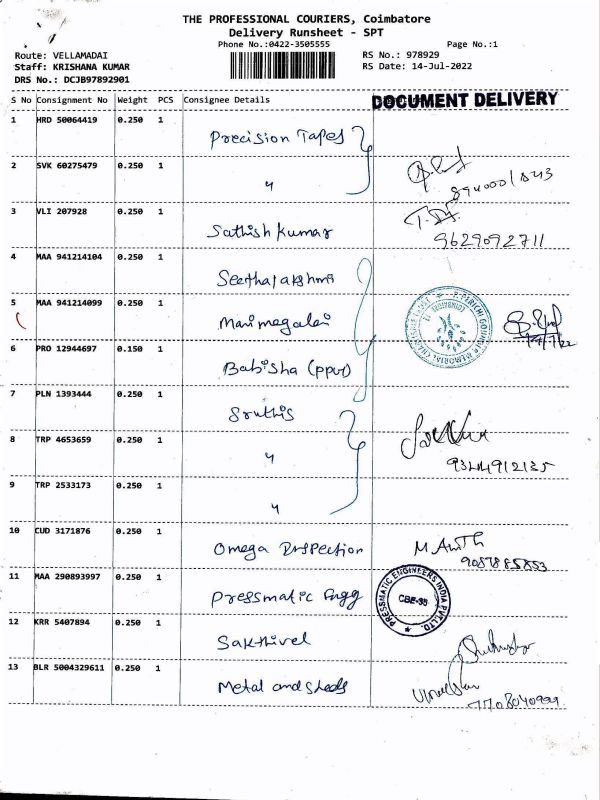 THE PROFESSIONAL COURIERS, Coimbatore
Delivery Runsheet - SPT
Phone No.:0422-3505555
Page No.:1
Route: VELLAMADAI
RS No.: 978929
Staff: KRISHANA KUMAR
RS Date: 14-Jul-2022
DRS No.: DCJB97892901
S No Consignment No Weight PCS Consignee Details
DOCUMENT DELIVERY
1 HRD 50064419 0.250 1 Precision Tapes
2 SVK 60275479 0.250 1 "
3 VLI 207928 0.250 1 Sathish Kumar
9629092711
4 MAA 941214104 0.250 1 Seethalakshmi
5 MAA 941214099 0.250 1 Manimegalai
6 PRO 12944697 0.150 1 Babisha (ppvt)
7 PLN 1393444 0.250 1 Sruthis
8 TRP 4653659 0.250 1 "
9 TRP 2533173 0.250 1 "
10 CUD 3171876 0.250 1 Omega Inspection
11 MAA 290893997 0.250 1 Pressmatic Engg
PRESSMATIC ENGINEERS INDIA PVT.LTD.
12 KRR 5407894 0.250 1 Sakthivel
13 BLR 5004329611 0.250 1 Metal and Sheds
7708040999